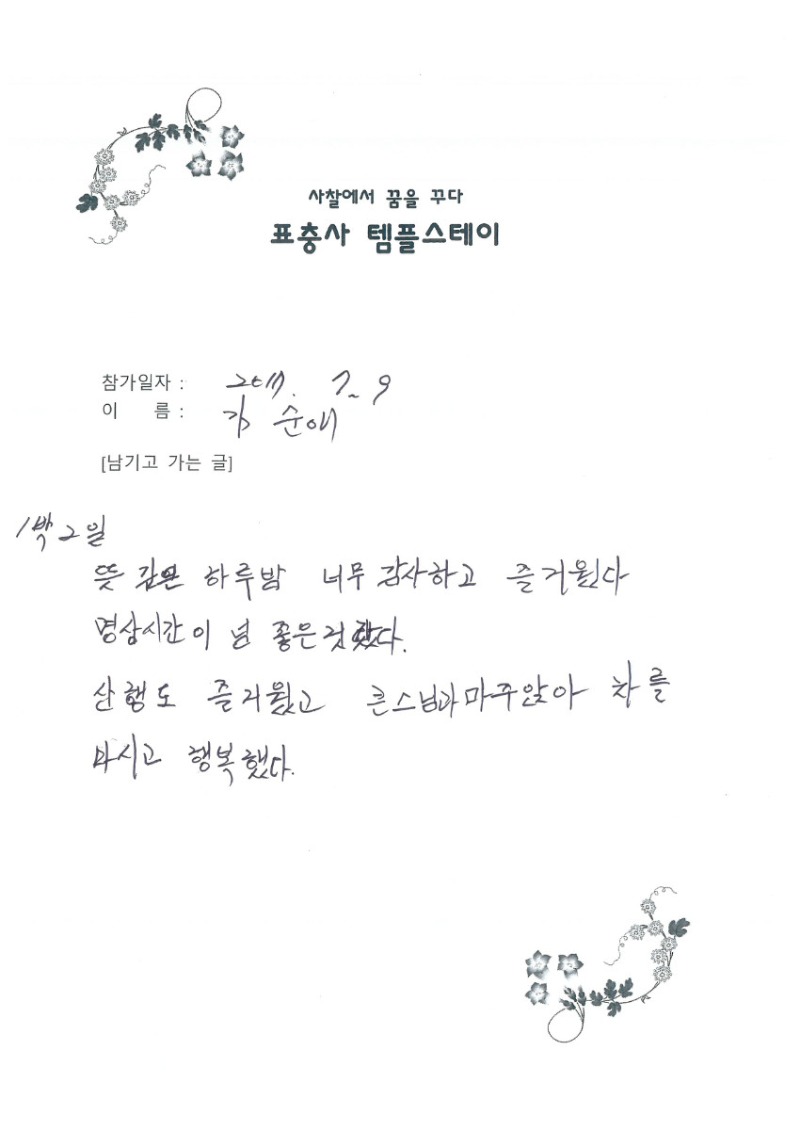 사찰에서 꿈을 꾸다
표충사 템플스테이
참가일자 : 2017. 7. 9
이 름 : 김 순애
[남기고 가는 글]
1박 2일
뜻 깊은 하루밤 너무 감사하고 즐거웠다
명상시간이 넘 좋은것 같다.
산행도 즐거웠고 큰스님과 마주앉아 차를
마시고 행복했다.